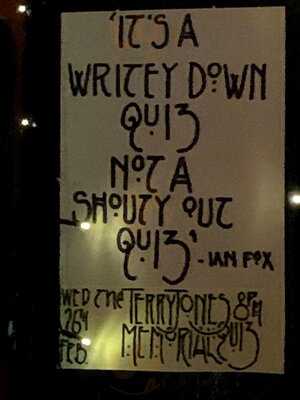 'IT'S A
WRITEY DOWN
QUIZ
NOT A
SHOUTY OUT
QUIZ' - IAN FOX
WED THE TERRY JONES 8PM
26TH MEMORIAL QUIZ
FEB.